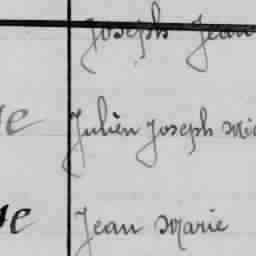 Joseph Jean
Julien Joseph
Jean Marie